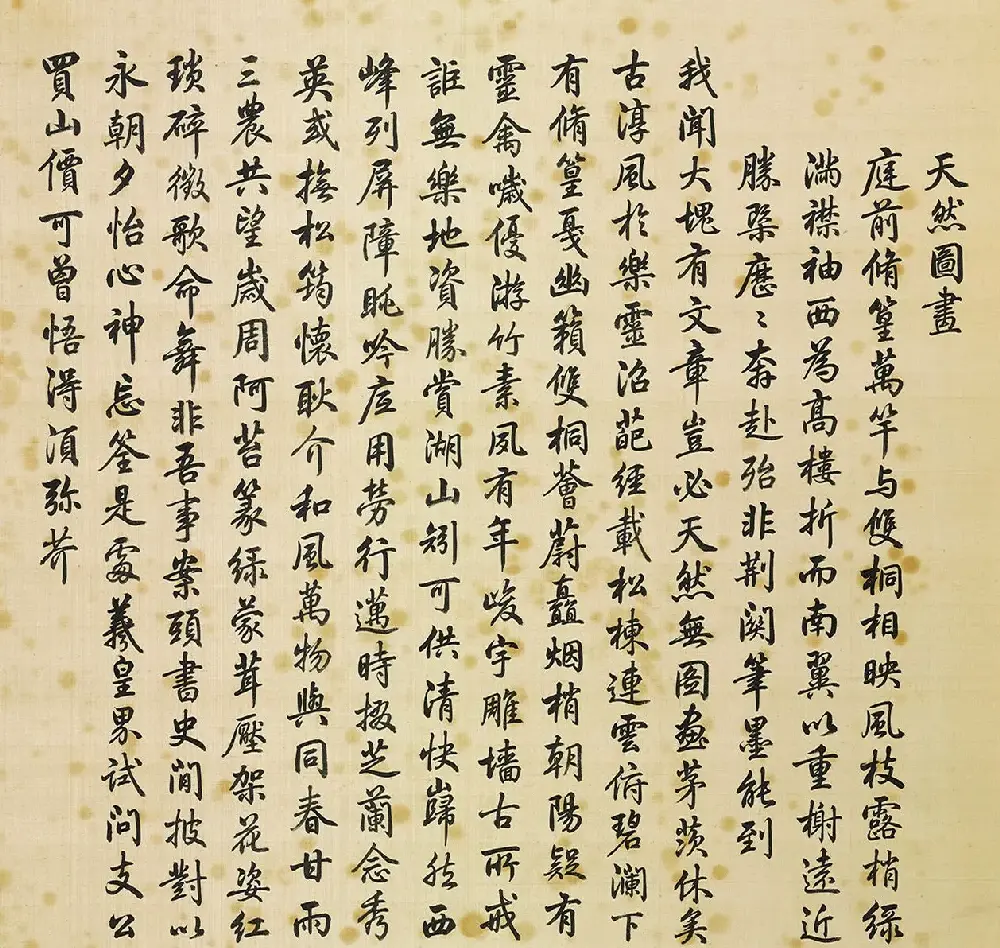 天然圖畫
庭前脩篁萬竿与雙桐相映風枝露梢綠
滿襟袖西為高樓折而南翼以重榭遠近
勝槩歷〻奔赴殆非荆関筆墨能到
我聞大塊有文章豈必天然無圖畫茅茨休矣
古淳風於樂靈沼葩經載松棟連雲俯碧瀾下
有脩篁戞幽籟雙桐薈蔚矗烟梢朝陽疑有
靈禽噦優游竹素夙有年峻宇雕墻古所戒
詎無樂地資勝賞湖山矧可供清快巋然西
峰列屏障眺吟底用勞行邁時掇芝蘭念秀
英或撫松筠懷耿介和風萬物與同春甘雨
三農共望歲周阿苔篆綠蒙茸壓架花姿紅
琐碎徵歌命舞非吾事案頭書史閒披對以
永朝夕怡心神忘筌是處羲皇界試問支公
買山價可曾悟淂湏弥芥